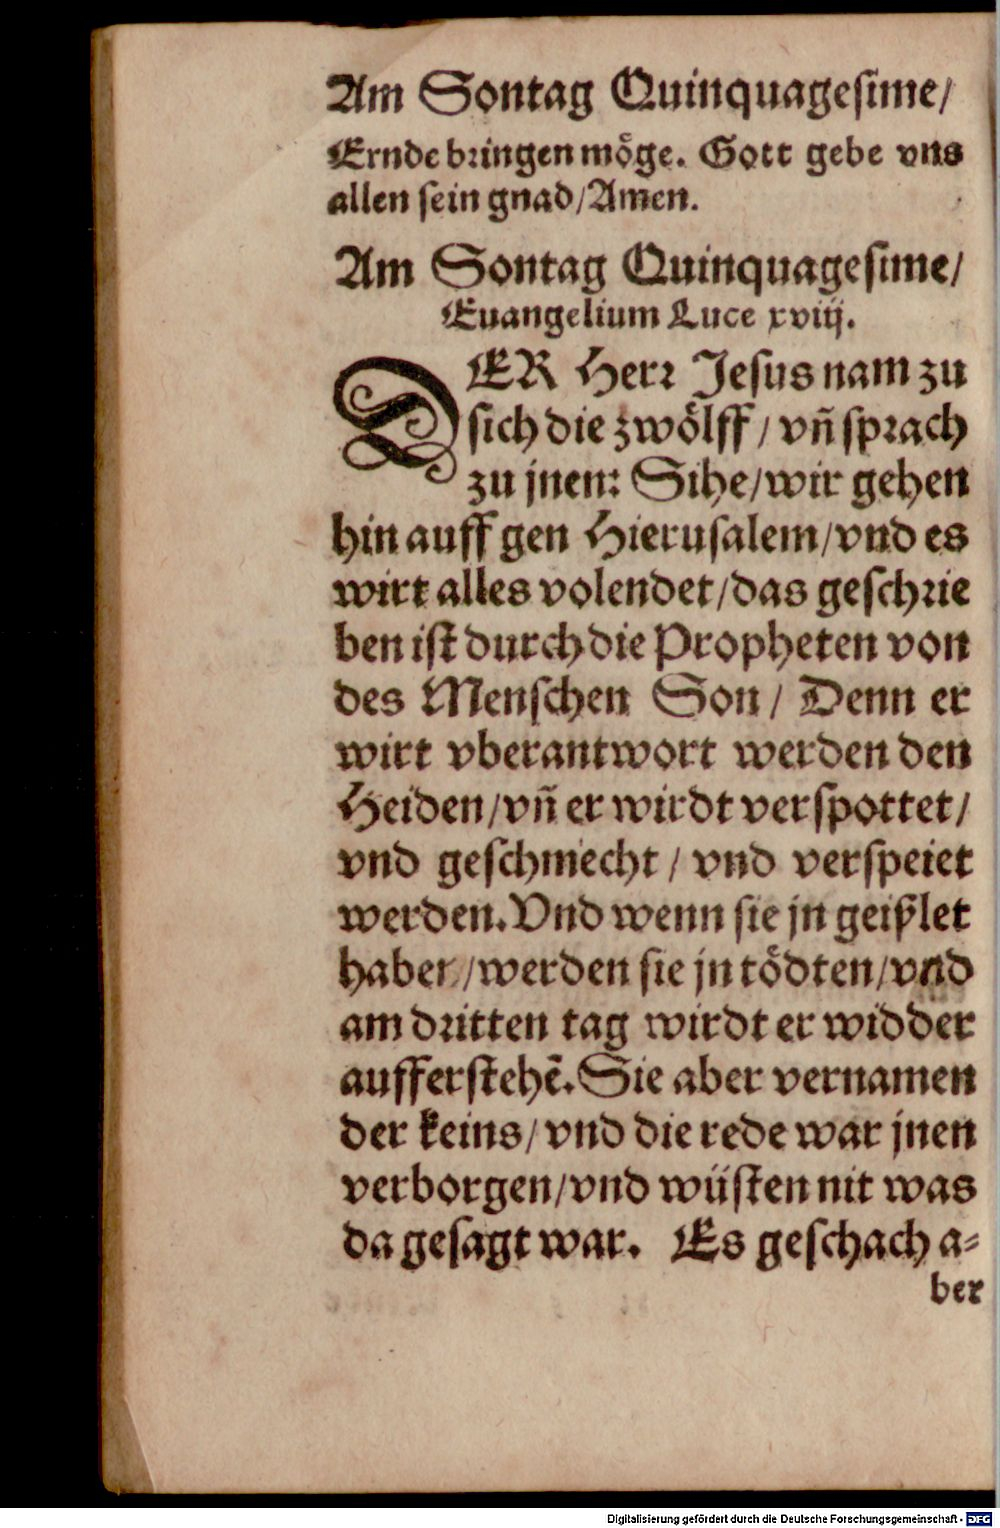 Am Sontag Quinquagesime/
Ernde bringen möge. Gott gebe vns
allen sein gnad/Amen.
Am Sontag Quinquagesime/
Euangelium Luce xviij.
DER Herr Jesus nam zu
sich die zwölff / vñ sprach
zu jnen: Sihe/wir gehen
hin auff gen Hierusalem/vnd es
wirt alles volendet/das geschrie
ben ist durch die Propheten von
des Menschen Son / Denn er
wirt vberantwort werden den
Heiden/vñ er wirdt verspottet/
vnd geschmecht / vnd verspeiet
werden. Vnd wenn sie jn geißlet
haben/werden sie jn tödten/vnd
am dritten tag wirdt er widder
aufferstehē. Sie aber vernamen
der keins/vnd die rede war jnen
verborgen/vnd wüsten nit was
da gesagt war. Es geschach a-
ber
Digitalisierung gefördert durch die Deutsche Forschungsgemeinschaft - DFG